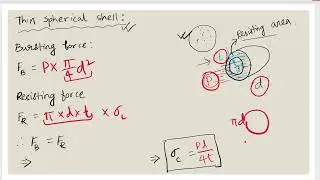 Thin spherical shell:
Bursting force:
F_B = P × π/4 d²
Resisting force
F_R = π × d × t × σ_c
∴ F_B = F_R
⇒
⇒ σ_c = Pd/4t
Resisting area.
P
d
πd